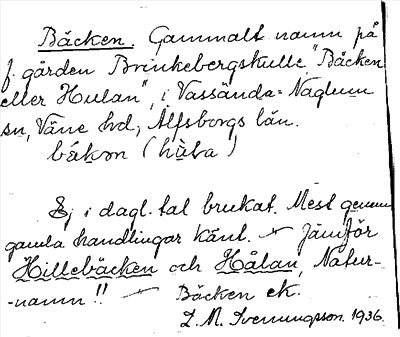 Bäcken. Gammalt namn på
f. gården Brinkebergskulle, "Bäcken
eller Hulan", i Vassända-Naglum
sn, Väne hd, Älfsborgs län.
bäkən (hùla)
Ej i dagl. tal brukat. Mest genom
gamla handlingar känt. — Jämför
Hillebäcken och Hålan, Natur-
-namn!! — Bäcken ek.